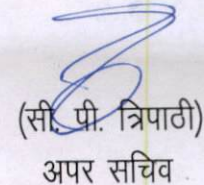 (सी. पी. त्रिपाठी)
अपर सचिव